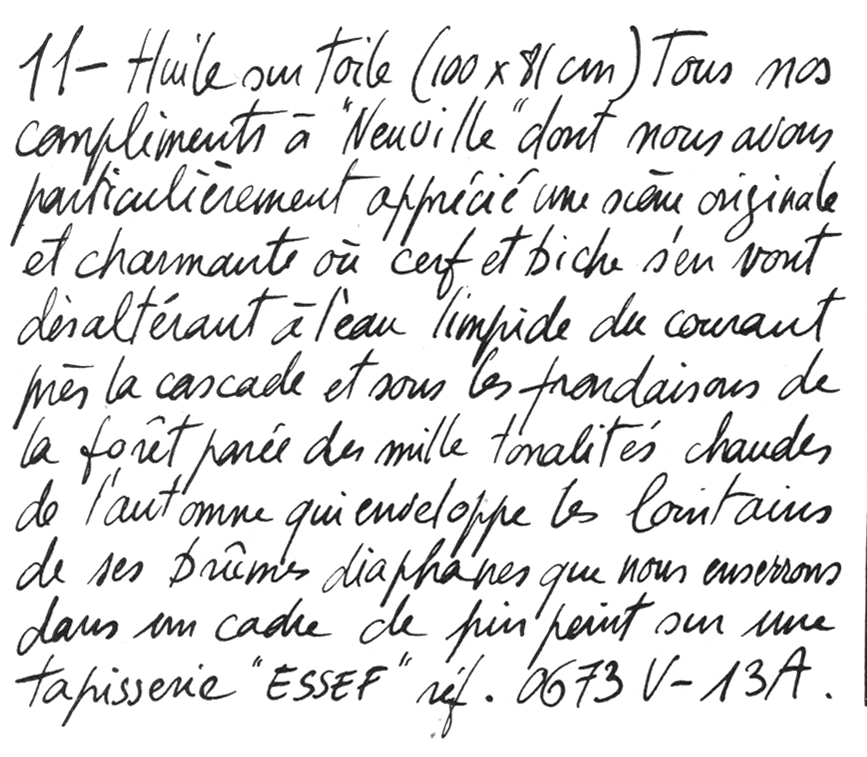 11- Huile sur toile (100 x 81 cm) Tous nos
compliments à "Neuville" dont nous avons
particulièrement apprécié une scène originale
et charmante où cerf et biche s'en vont
désaltérant à l'eau limpide du courant
près la cascade et sous les frondaisons de
la forêt parée des mille tonalités chaudes
de l'automne qui enveloppe les lointains
de ses brûmes diaphanes que nous enserrons
dans un cadre de pin peint sur une
tapisserie "ESSEF" réf. 0673 V-13A.